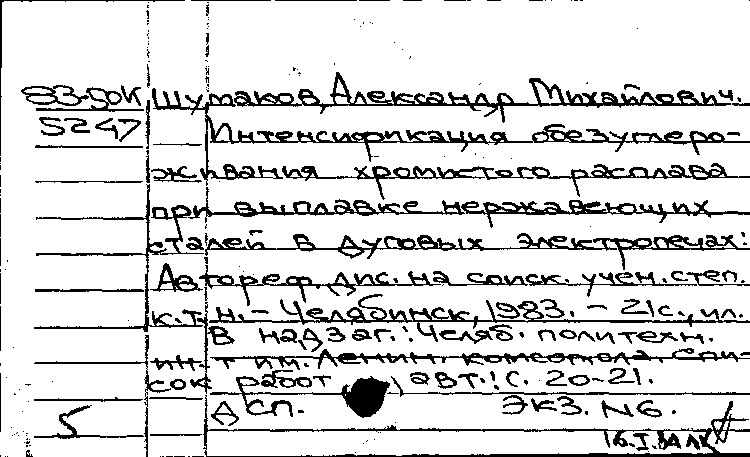 83-50К Шумаков, Александр Михайлович.
5247 Интенсификация обезуглеро-
живания хромистого расплава
при выплавке нержавеющих
сталей в дуговых электропечах:
Автореф. дис. на соиск. учен. степ.
к.т.н. - Челябинск, 1983. - 21с., ил.
В надзаг.: Челяб. политехн.
ин-т им. Ленин. комсомола. Спи-
сок работ авт.: с. 20-21.
ДСП. ЭКЗ. N6.
5